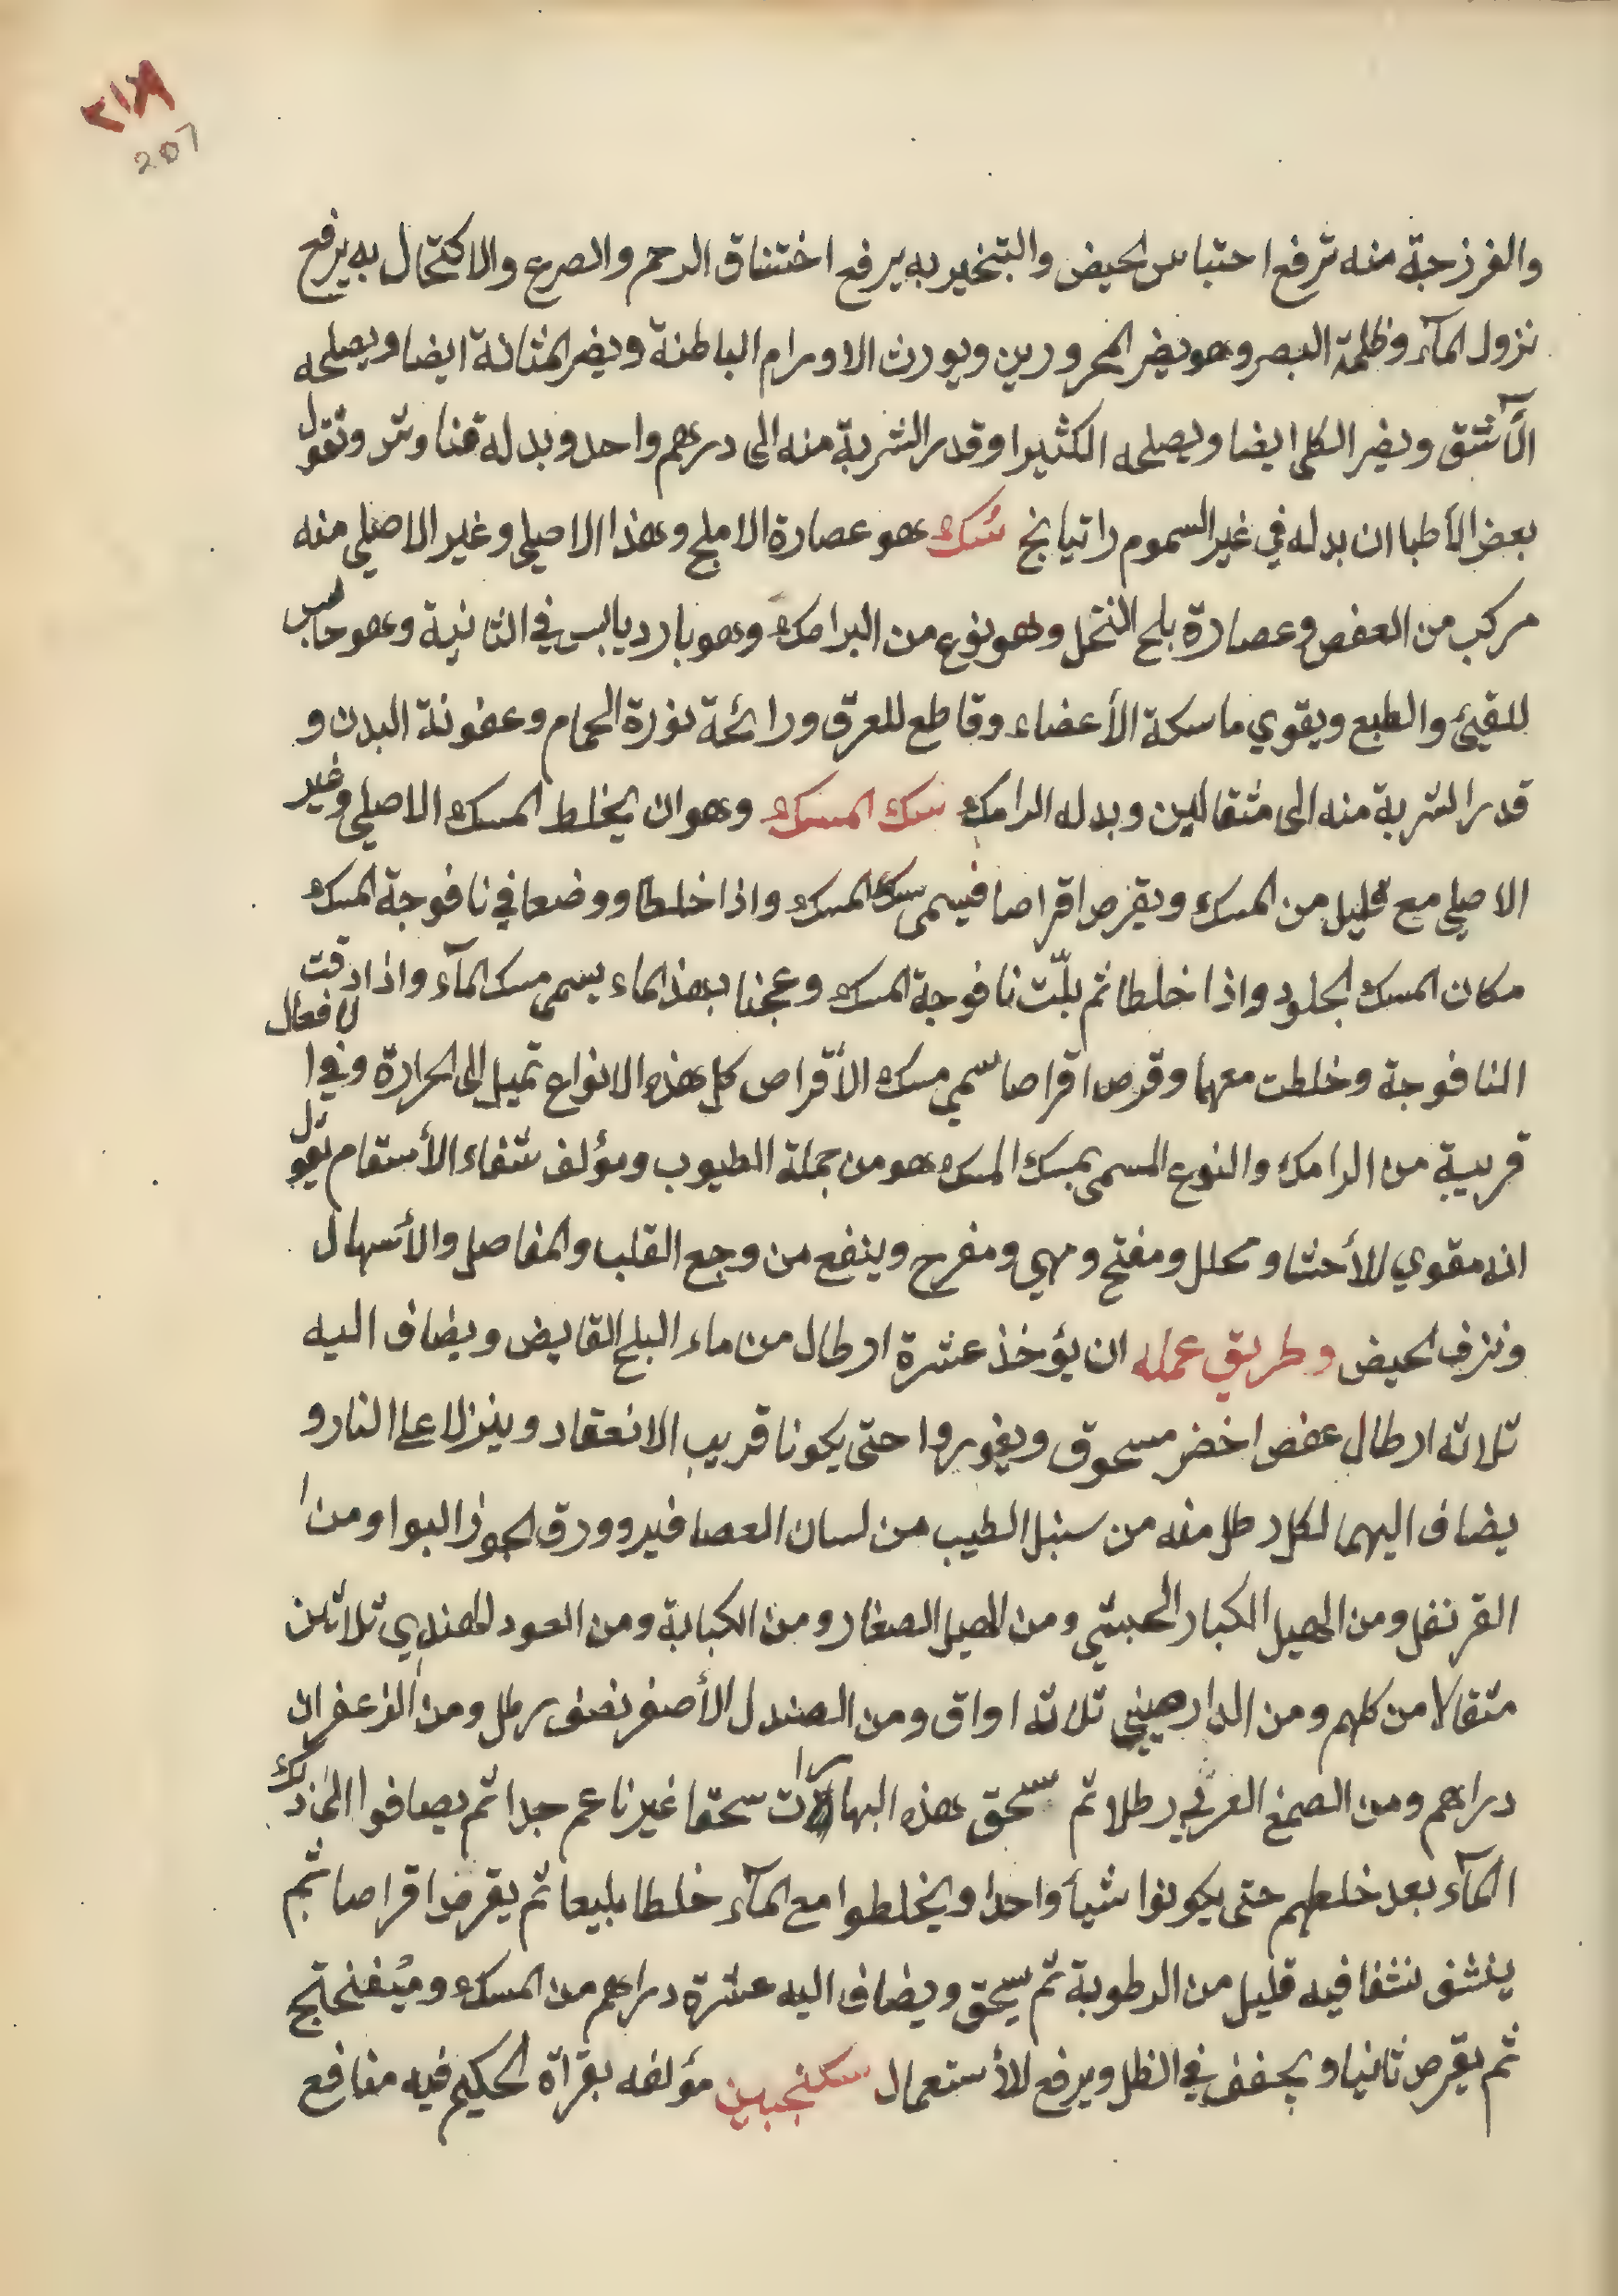 ٢١٨
207
والفرزجة منه ترفع احتباس الحيض والتبخير به يرفع اختناق الرحم والصرع والاكتحال به يرفع
نزول المآء وظلمة البصر وهو يضر المحرورين ويورث الاورام الباطنة ويضر المثانة ايضا ويصلحه
الآشق ويضر الكلى ايضا ويصلحه الكثيرا وقدر الشربة منه الى درهم واحد وبدله قنا وشر وتقول
بعض الأطبا ان بدله في غير السموم راتيانج سُك هو عصارة الاملج وهذا الاصيلي وغير الاصيلي منه
مركب من العفص وعصارة بلح النخل وهو نوع من البرامك وهو بارد يابس في الثانية وهو حابس
للقيئ والطبع ويقوي ماسكة الأعضاء وقاطع للعرق ورائحة نورة الحمام وعفونة البدن و
قدر الشربة منه الى مثقالين وبدله الرامك سك المسك وهو ان يخلط المسك الاصيلي وغير
الاصيلي مع قليل من المسك ويقرص اقراصا فيسمى سك المسك واذا خلطا ووضعا في نافوجة المسك
مكان المسك الجلود واذا خلطا ثم بلّت نافوجة المسك وعجنا بهذا الماء يسمى مسك المآء واذا دقت
النافوجة وخلطت معهما وقرص اقراصا سمي مسك الأقراص كل هذه الانواع تميل الى الحرارة وفي الافعال
قريبة من الرامك والنوع المسمى بمسك المسك هو من جملة الطيوب ومؤلف شفاء الأسقام يقول
انه مقوي للأحشا ومحلل ومفتح ومهي ومفرح وينفع من وجع القلب والمفاصل والأسهال
ونزف الحيض وطريق عمله ان يؤخذ عشرة ارطال من ماء البلح القابض ويضاف اليه
ثلاثه ارطال عفص اخضر مسحوق ويفوروا حتى يكونا قريب الانعقاد وينزلا على النار و
يضاف اليهما لكل رطل منه من سنبل الطيب من لسان العصافير وورق الجوز البوا ومن ا
القرنفل ومن الهيل الكبار الحبشي ومن الهيل الصغار ومن الكبابة ومن العود الهندي ثلاثين
مثقالا من كلهم ومن الدارصيني ثلاثه اواق ومن الصندل الأصفر نصف رطل ومن الزعفران
دراهم ومن الصمغ العربي رطلا ثم سحق هذه البهارات سحقا غير ناعم جدا ثم يصافوا الى ذلك
المآء بعد خلطهم حتى يكونوا شيأ واحدا ويخلطوا مع المآء خلطا بليعا ثم يقرص اقراصا ثم
ينشف نشفا فيه قليل من الرطوبة ثم يسحق ويضاف اليه عشرة دراهم من المسك وميفنحتج
ثم يقرص ثانيا ويجفف في الظل ويرفع للأستعمال سكنجبين مؤلفه بقرآة الحكيم فيه منافع